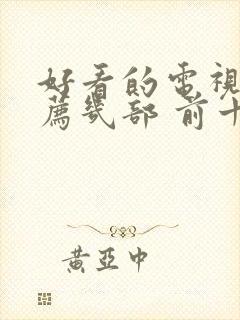 好看的電視
薦幾部 前十
黃亞中